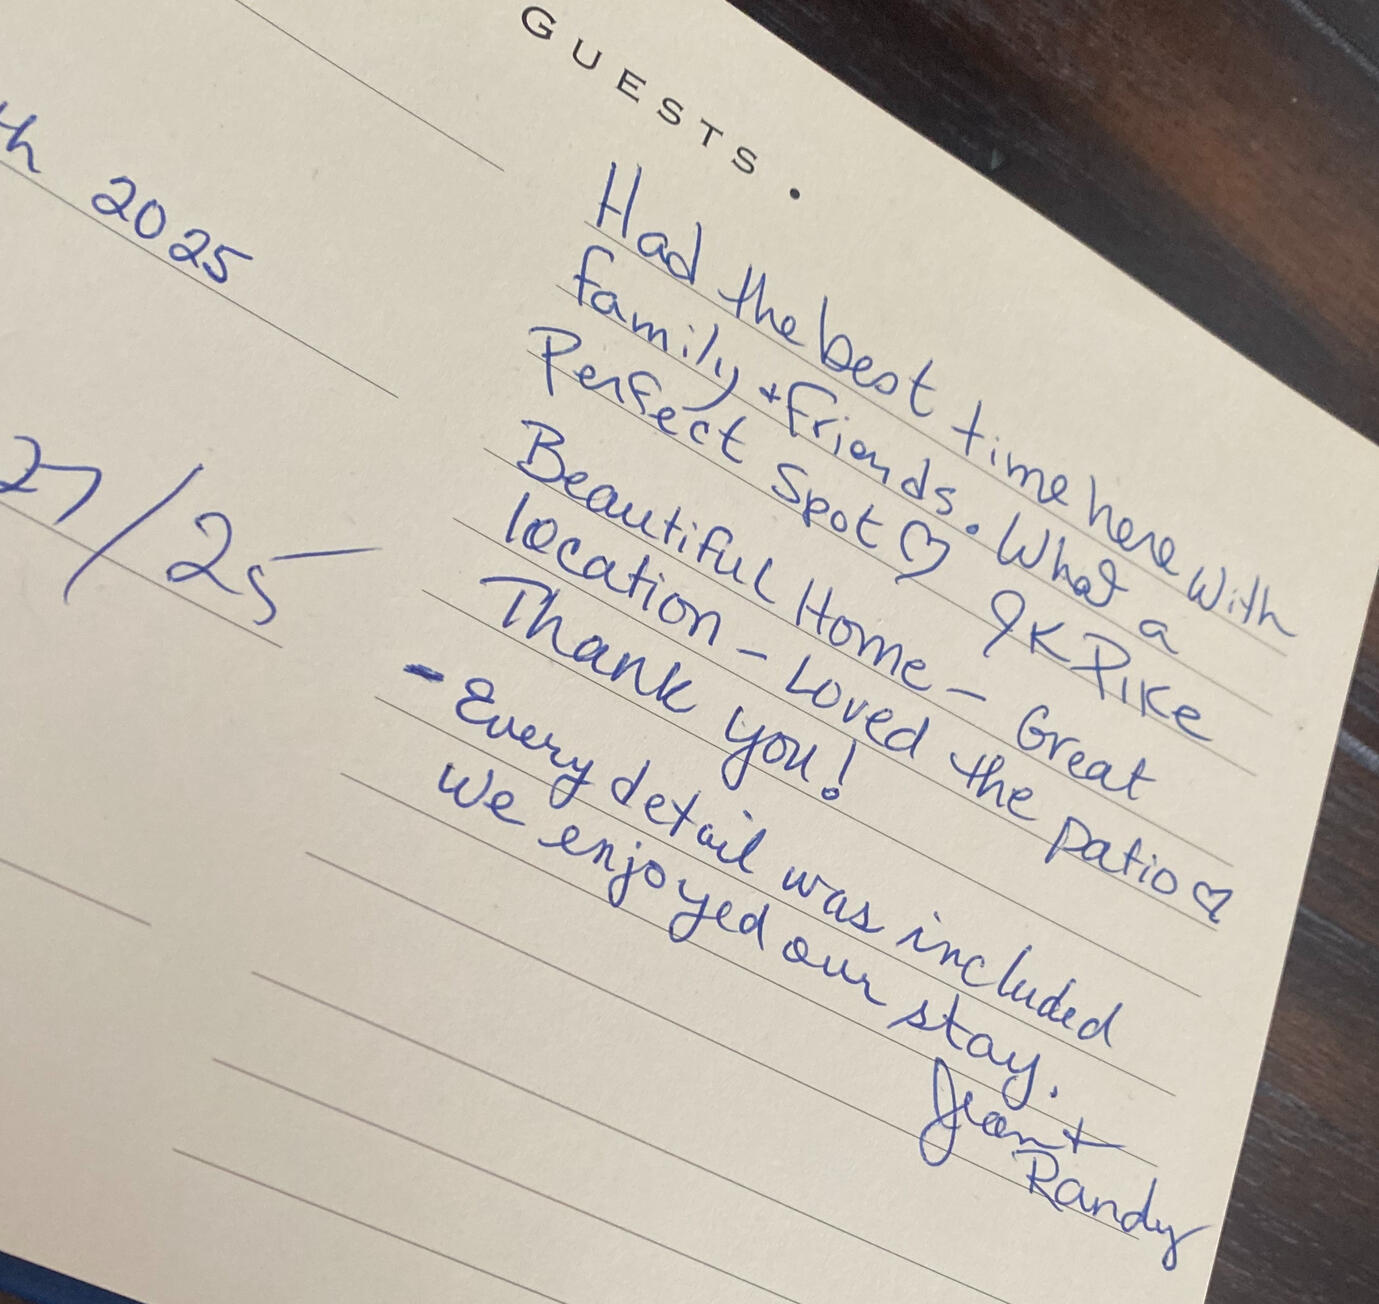 GUESTS.
th 2025
27/25
Had the best time here with
family + friends. What a
Perfect spot ♡ JK Pike
Beautiful Home - Great
location - Loved the patio ♡
Thank you!
- Every detail was included
we enjoyed our stay.
Jean +
Randy